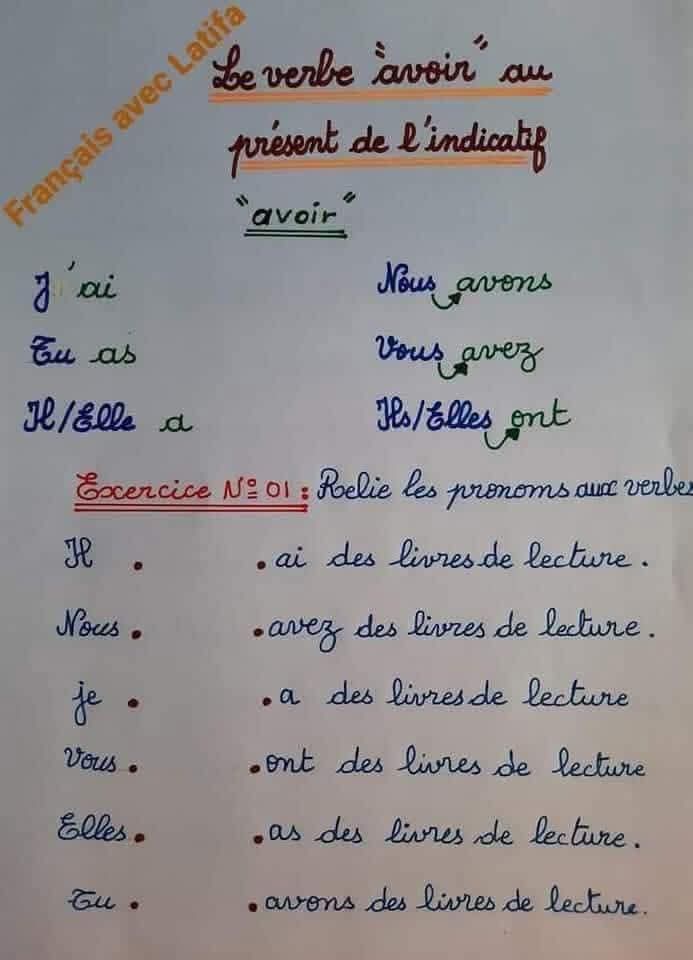 Français avec Latifa
Le verbe "avoir" au
présent de l'indicatif
"avoir"
J'ai Nous avons
Tu as Vous avez
Il/Elle a Ils/Elles ont
Exercice Nº 01 : Relie les pronoms aux verbes
Il . . ai des livres de lecture.
Nous . . avez des livres de lecture.
je . . a des livres de lecture
Vous . . ont des livres de lecture
Elles . . as des livres de lecture.
Tu . . avons des livres de lecture.